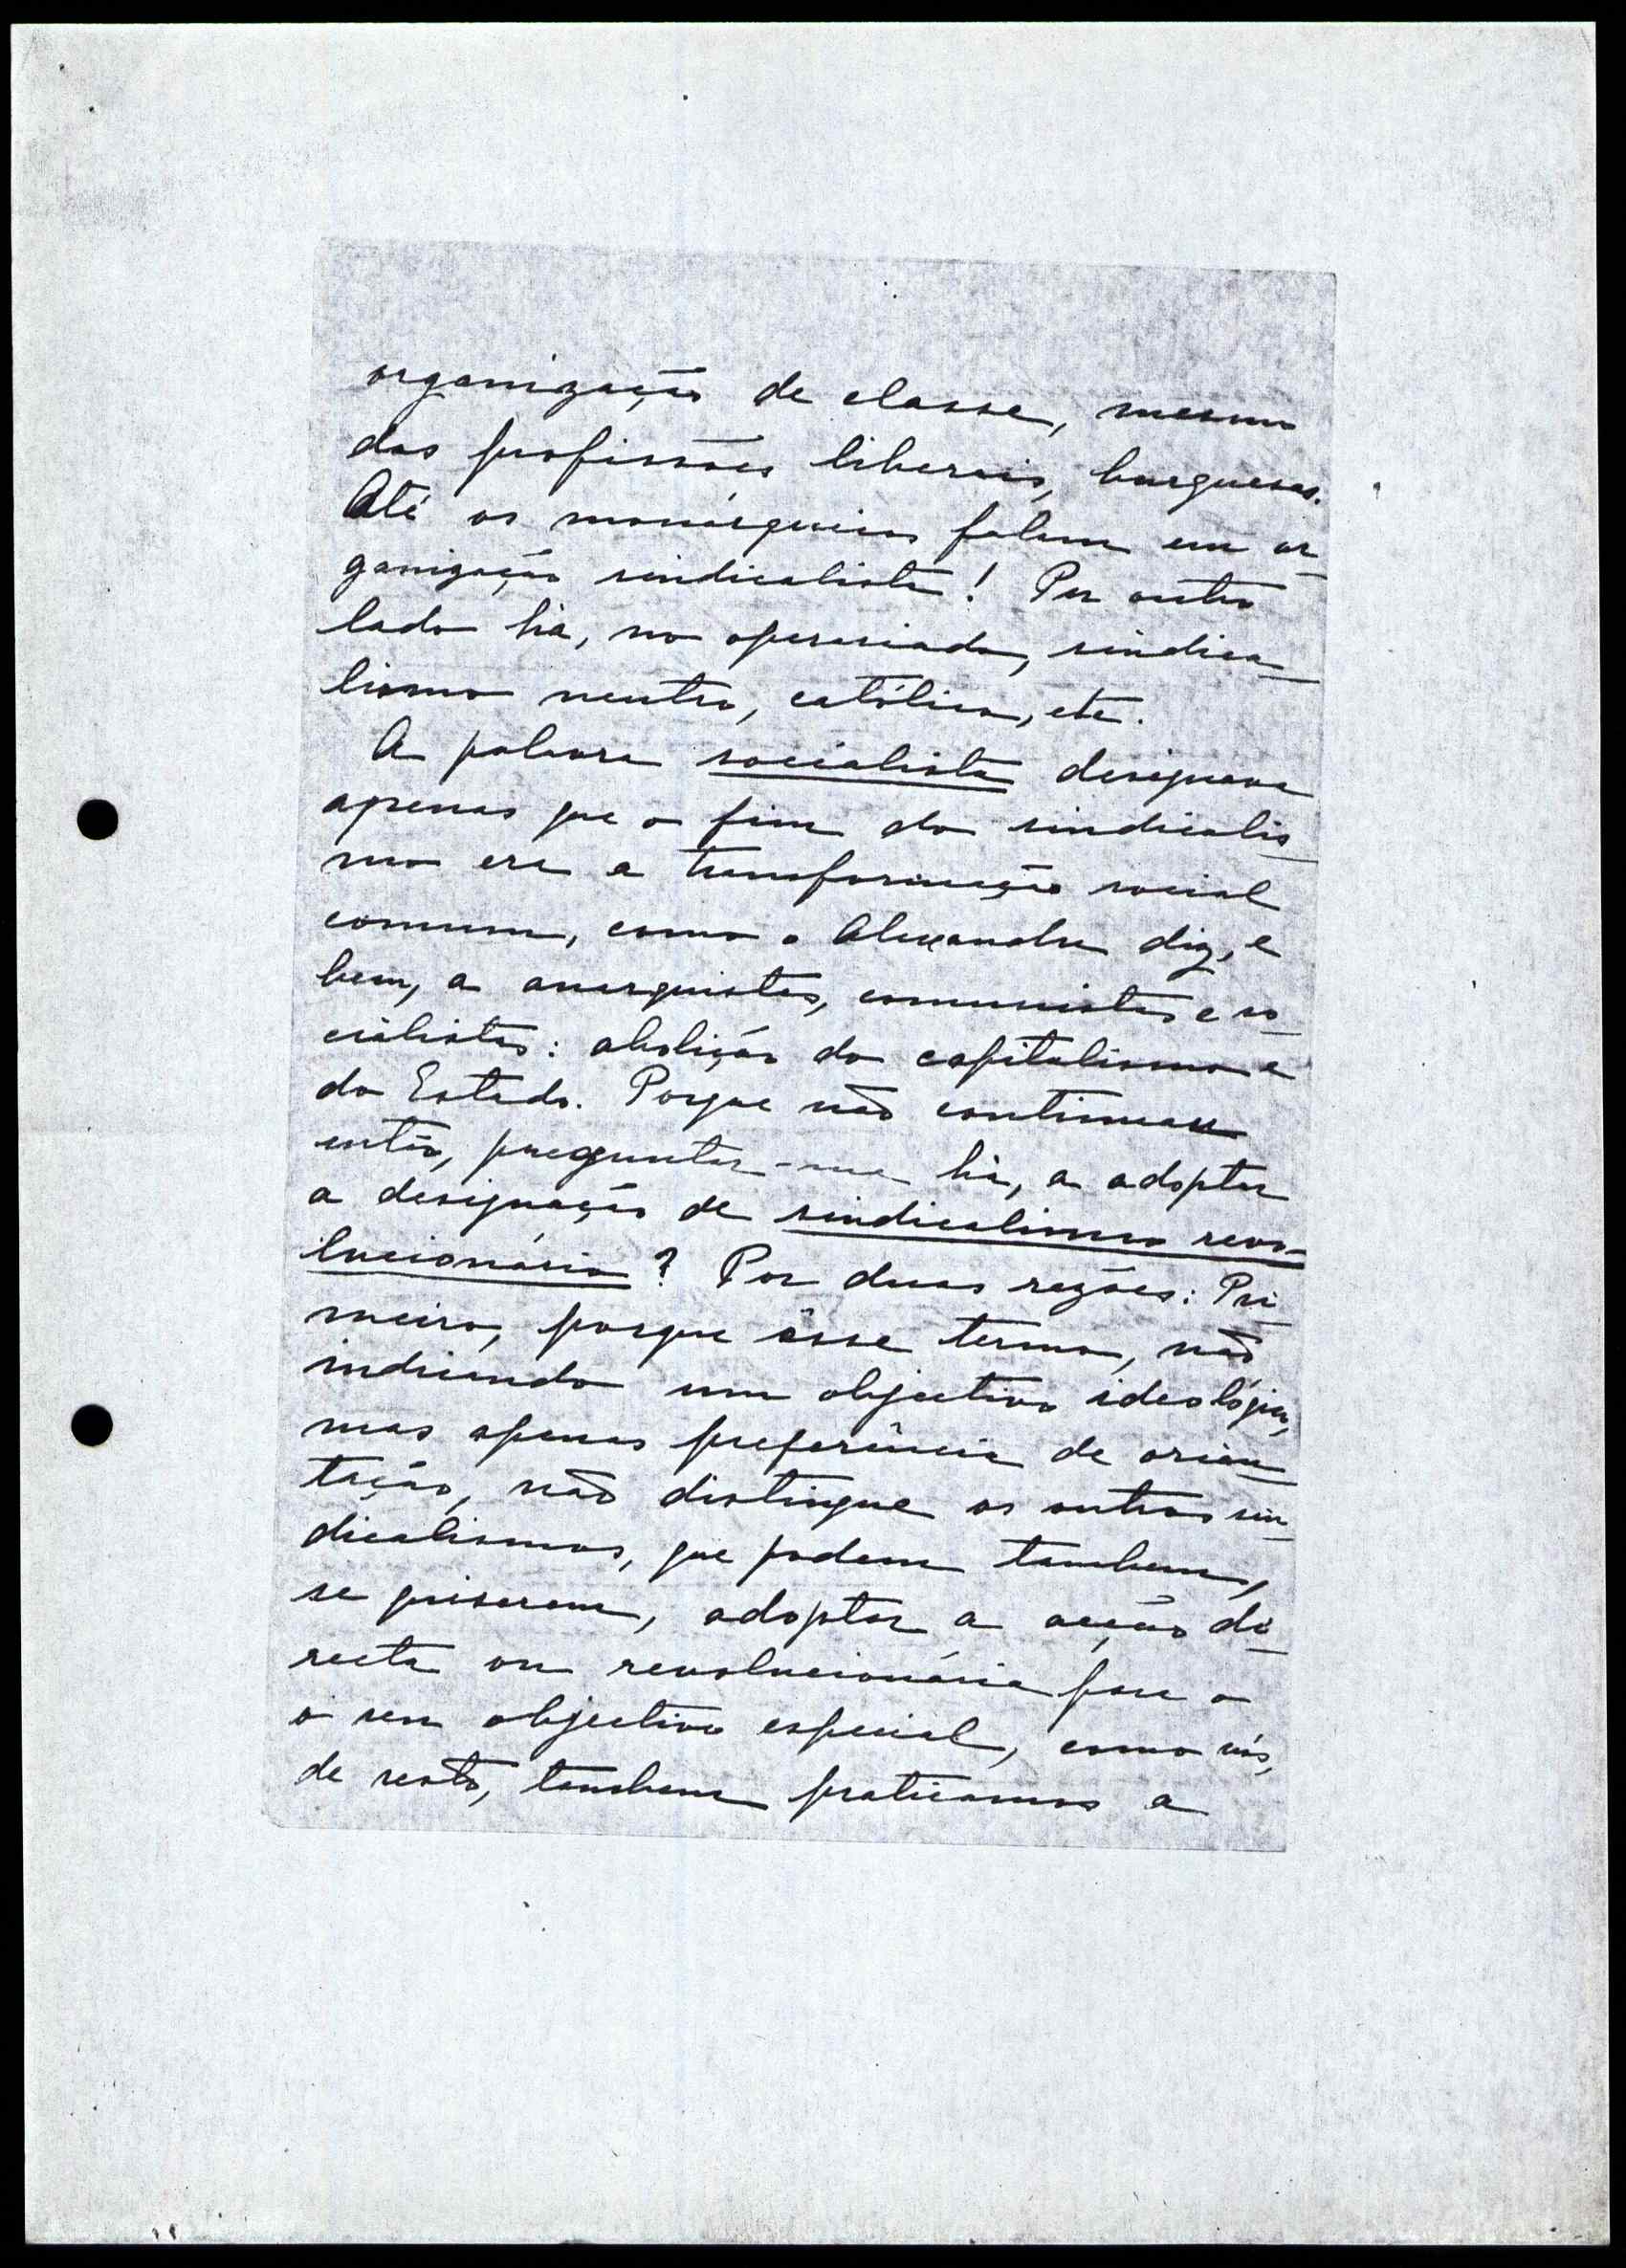 organização de classe, mesmo
das profissões liberais, burguesas.
Até os monárquicos falam em or-
ganização sindicalista! Por outro
lado há, no operariado, sindica-
lismo neutro, católico, etc.
A palavra socialista designava
apenas que o fim do sindicalis-
mo era a transformação social
comum, como o Alexandre diz, e
bem, a anarquistas, comunistas e so-
cialistas: abolição do capitalismo e
do Estado. Porque não continuou
então, preguntar-me há, a adoptar
a designação de sindicalismo revo-
lucionário? Por duas razões: Pri-
meiro, porque êsse termo, não
indicando um objectivo ideológico,
mas apenas preferência de orien-
tação, não distingue os outros sin-
dicalismos, que podem tambem,
se quiserem, adoptar a acção di-
recta ou revolucionária para o
o seu objectivo especial, como nós,
de resto, tambem praticamos a